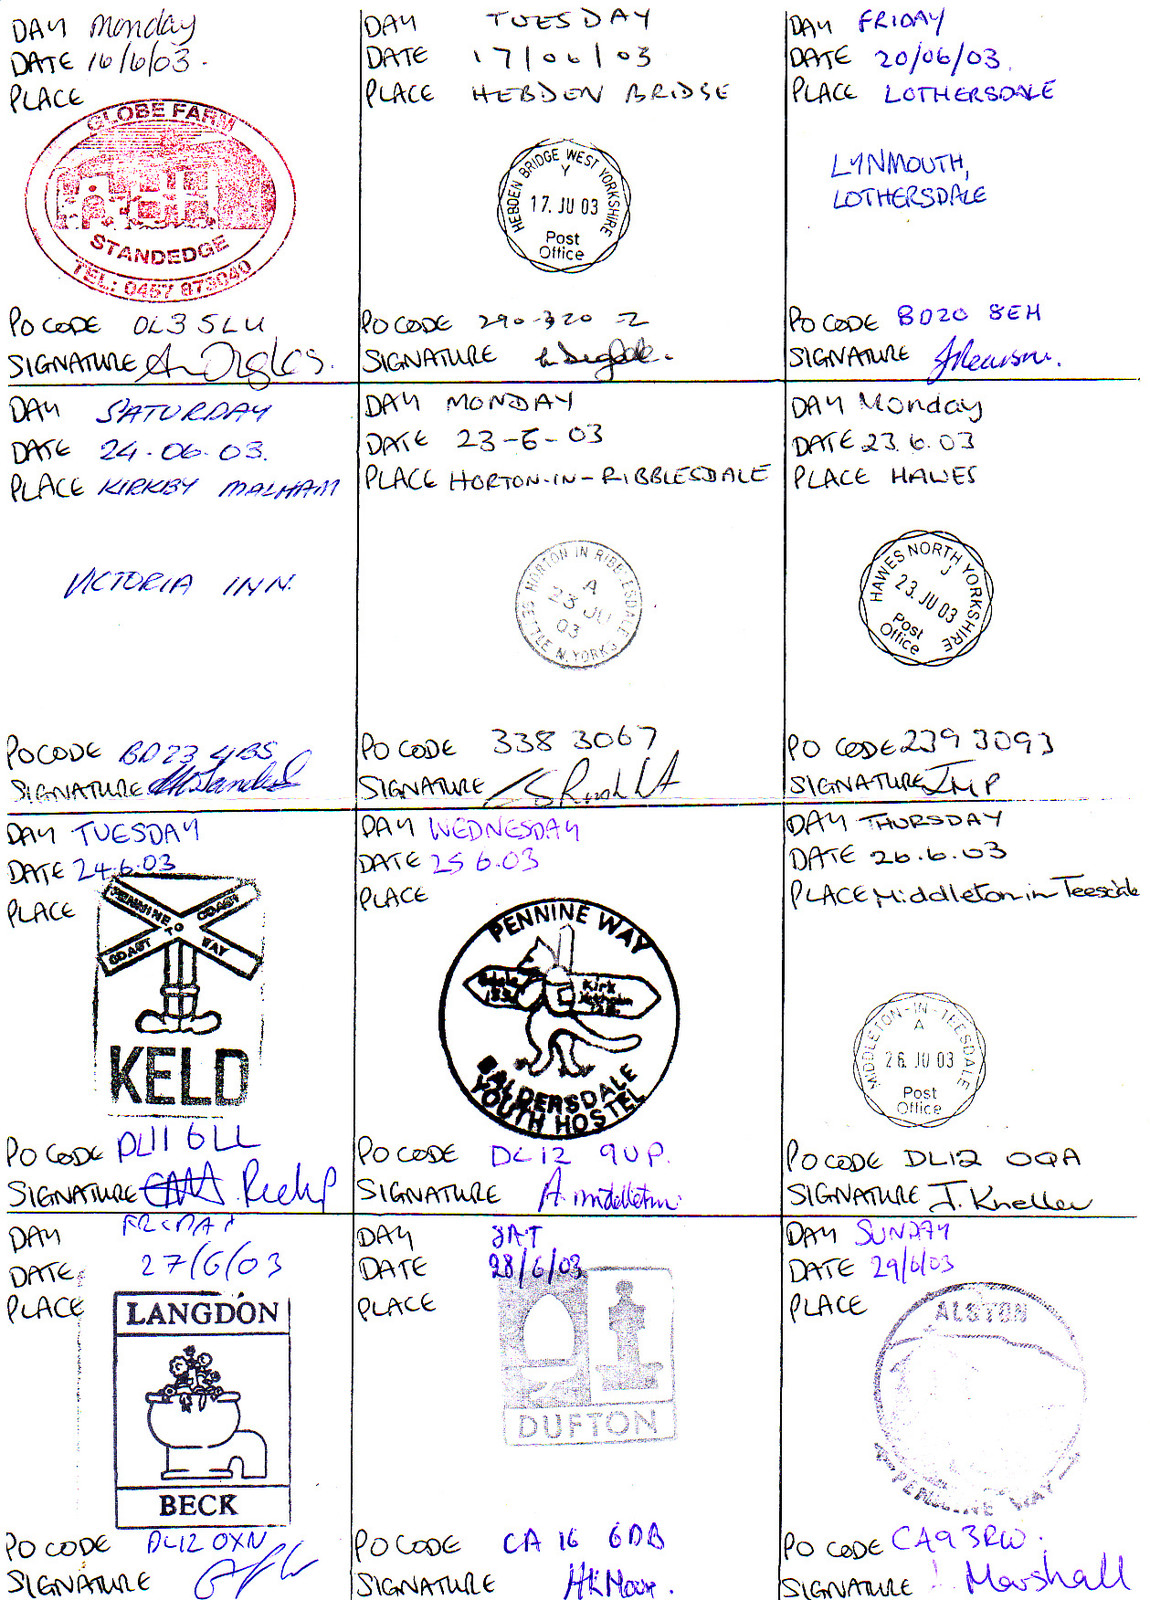 DAY Monday
DATE 16/6/03.
PLACE
GLOBE FARM
STANDEDGE
TEL: 0457 873040
PO CODE OL3 5LU
SIGNATURE
DAY TUESDAY
DATE 17/06/03
PLACE HEBDEN BRIDSE
HEBDEN BRIDGE WEST YORKSHIRE
Y
17. JU 03
Post
Office
PO CODE 290-320 -2
SIGNATURE
DAY FRIDAY
DATE 20/06/03.
PLACE LOTHERSDALE
LYNMOUTH,
LOTHERSDALE
PO CODE BD20 8EH
SIGNATURE
DAY SATURDAY
DATE 24.06.03.
PLACE KIRKBY MALHAM
VICTORIA INN.
PO CODE BD23 4BS
SIGNATURE
DAY MONDAY
DATE 23-6-03
PLACE HORTON-IN-RIBBLESDALE
HORTON IN RIBBLESDALE
A
23 JU
03
SETTLE N.YORKS
PO CODE 338 3067
SIGNATURE
DAY Monday
DATE 23.6.03
PLACE HAWES
HAWES NORTH YORKSHIRE
J
23. JU 03
Post
Office
PO CODE 239 3093
SIGNATURE JMP
DAY TUESDAY
DATE 24.6.03
PLACE
PENNINE TO COAST
COAST WAY
KELD
PO CODE DL11 6LL
SIGNATURE
DAY WEDNESDAY
DATE 25 6.03
PLACE
PENNINE WAY
Kirk
BALDERSDALE
YOUTH HOSTEL
PO CODE DL12 9UP.
SIGNATURE A. middleton.
DAY THURSDAY
DATE 26.6.03
PLACE Middleton in Teesdale
MIDDLETON-IN-TEESDALE
A
26 JU 03
Post
Office
PO CODE DL12 0QA
SIGNATURE J. Kneller
DAY FRIDAY
DATE 27/6/03
PLACE
LANGDON
BECK
PO CODE DL12 0XN
SIGNATURE
DAY SAT
DATE 28/6/03
PLACE
DUFTON
PO CODE CA16 6DB
SIGNATURE
DAY SUNDAY
DATE 29/6/03
PLACE
ALSTON
PENNINE WAY
PO CODE CA9 3RW.
SIGNATURE Marshall